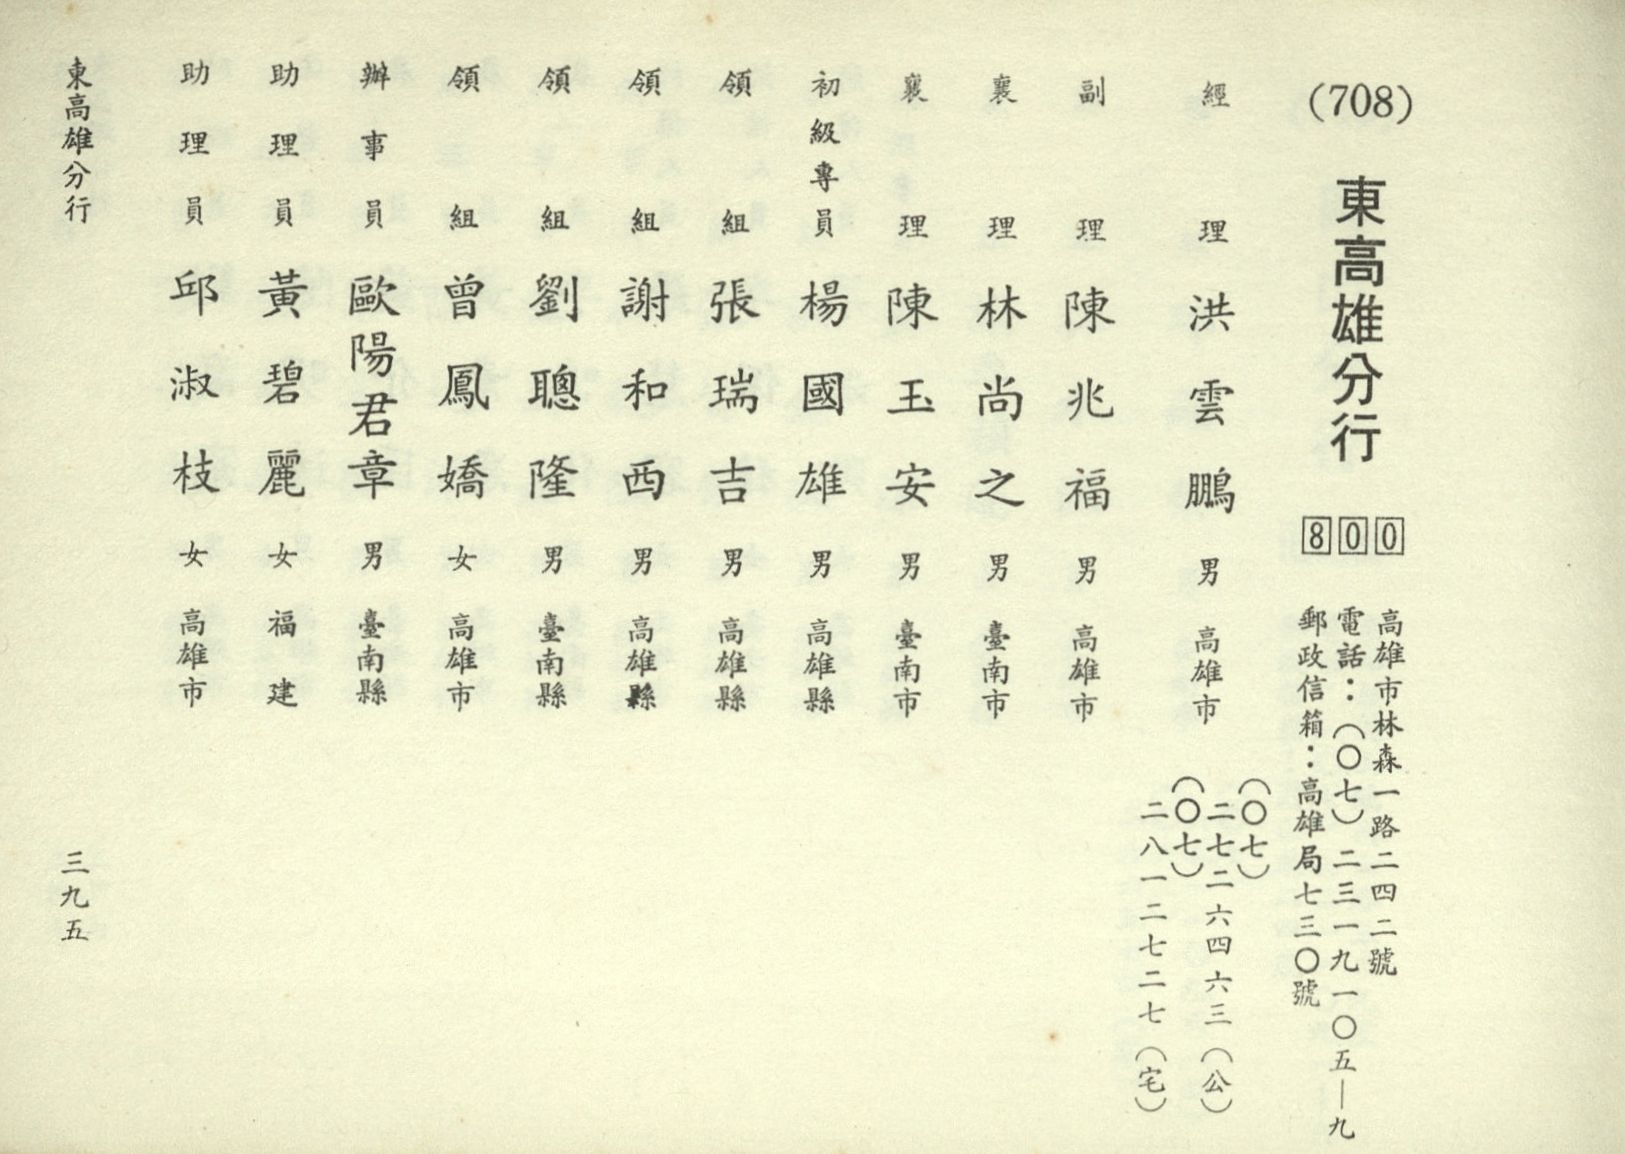 (708) 東高雄分行 800
高雄市林森一路二四二號
電話：(〇七)二三一九一〇五—九
郵政信箱：高雄局七三〇號
經理 洪雲鵬 男 高雄市
(〇七)
二七二六四六三(公)
(〇七)
二八一二七二七(宅)
副理 陳兆福 男 高雄市
襄理 林尚之 男 臺南市
襄理 陳玉安 男 臺南市
初級專員 楊國雄 男 高雄縣
領組 張瑞吉 男 高雄縣
領組 謝和西 男 高雄縣
領組 劉聰隆 男 臺南縣
領組 曾鳳嬌 女 高雄市
辦事員 歐陽君章 男 臺南縣
助理員 黃碧麗 女 福建
助理員 邱淑枝 女 高雄市
東高雄分行 三九五